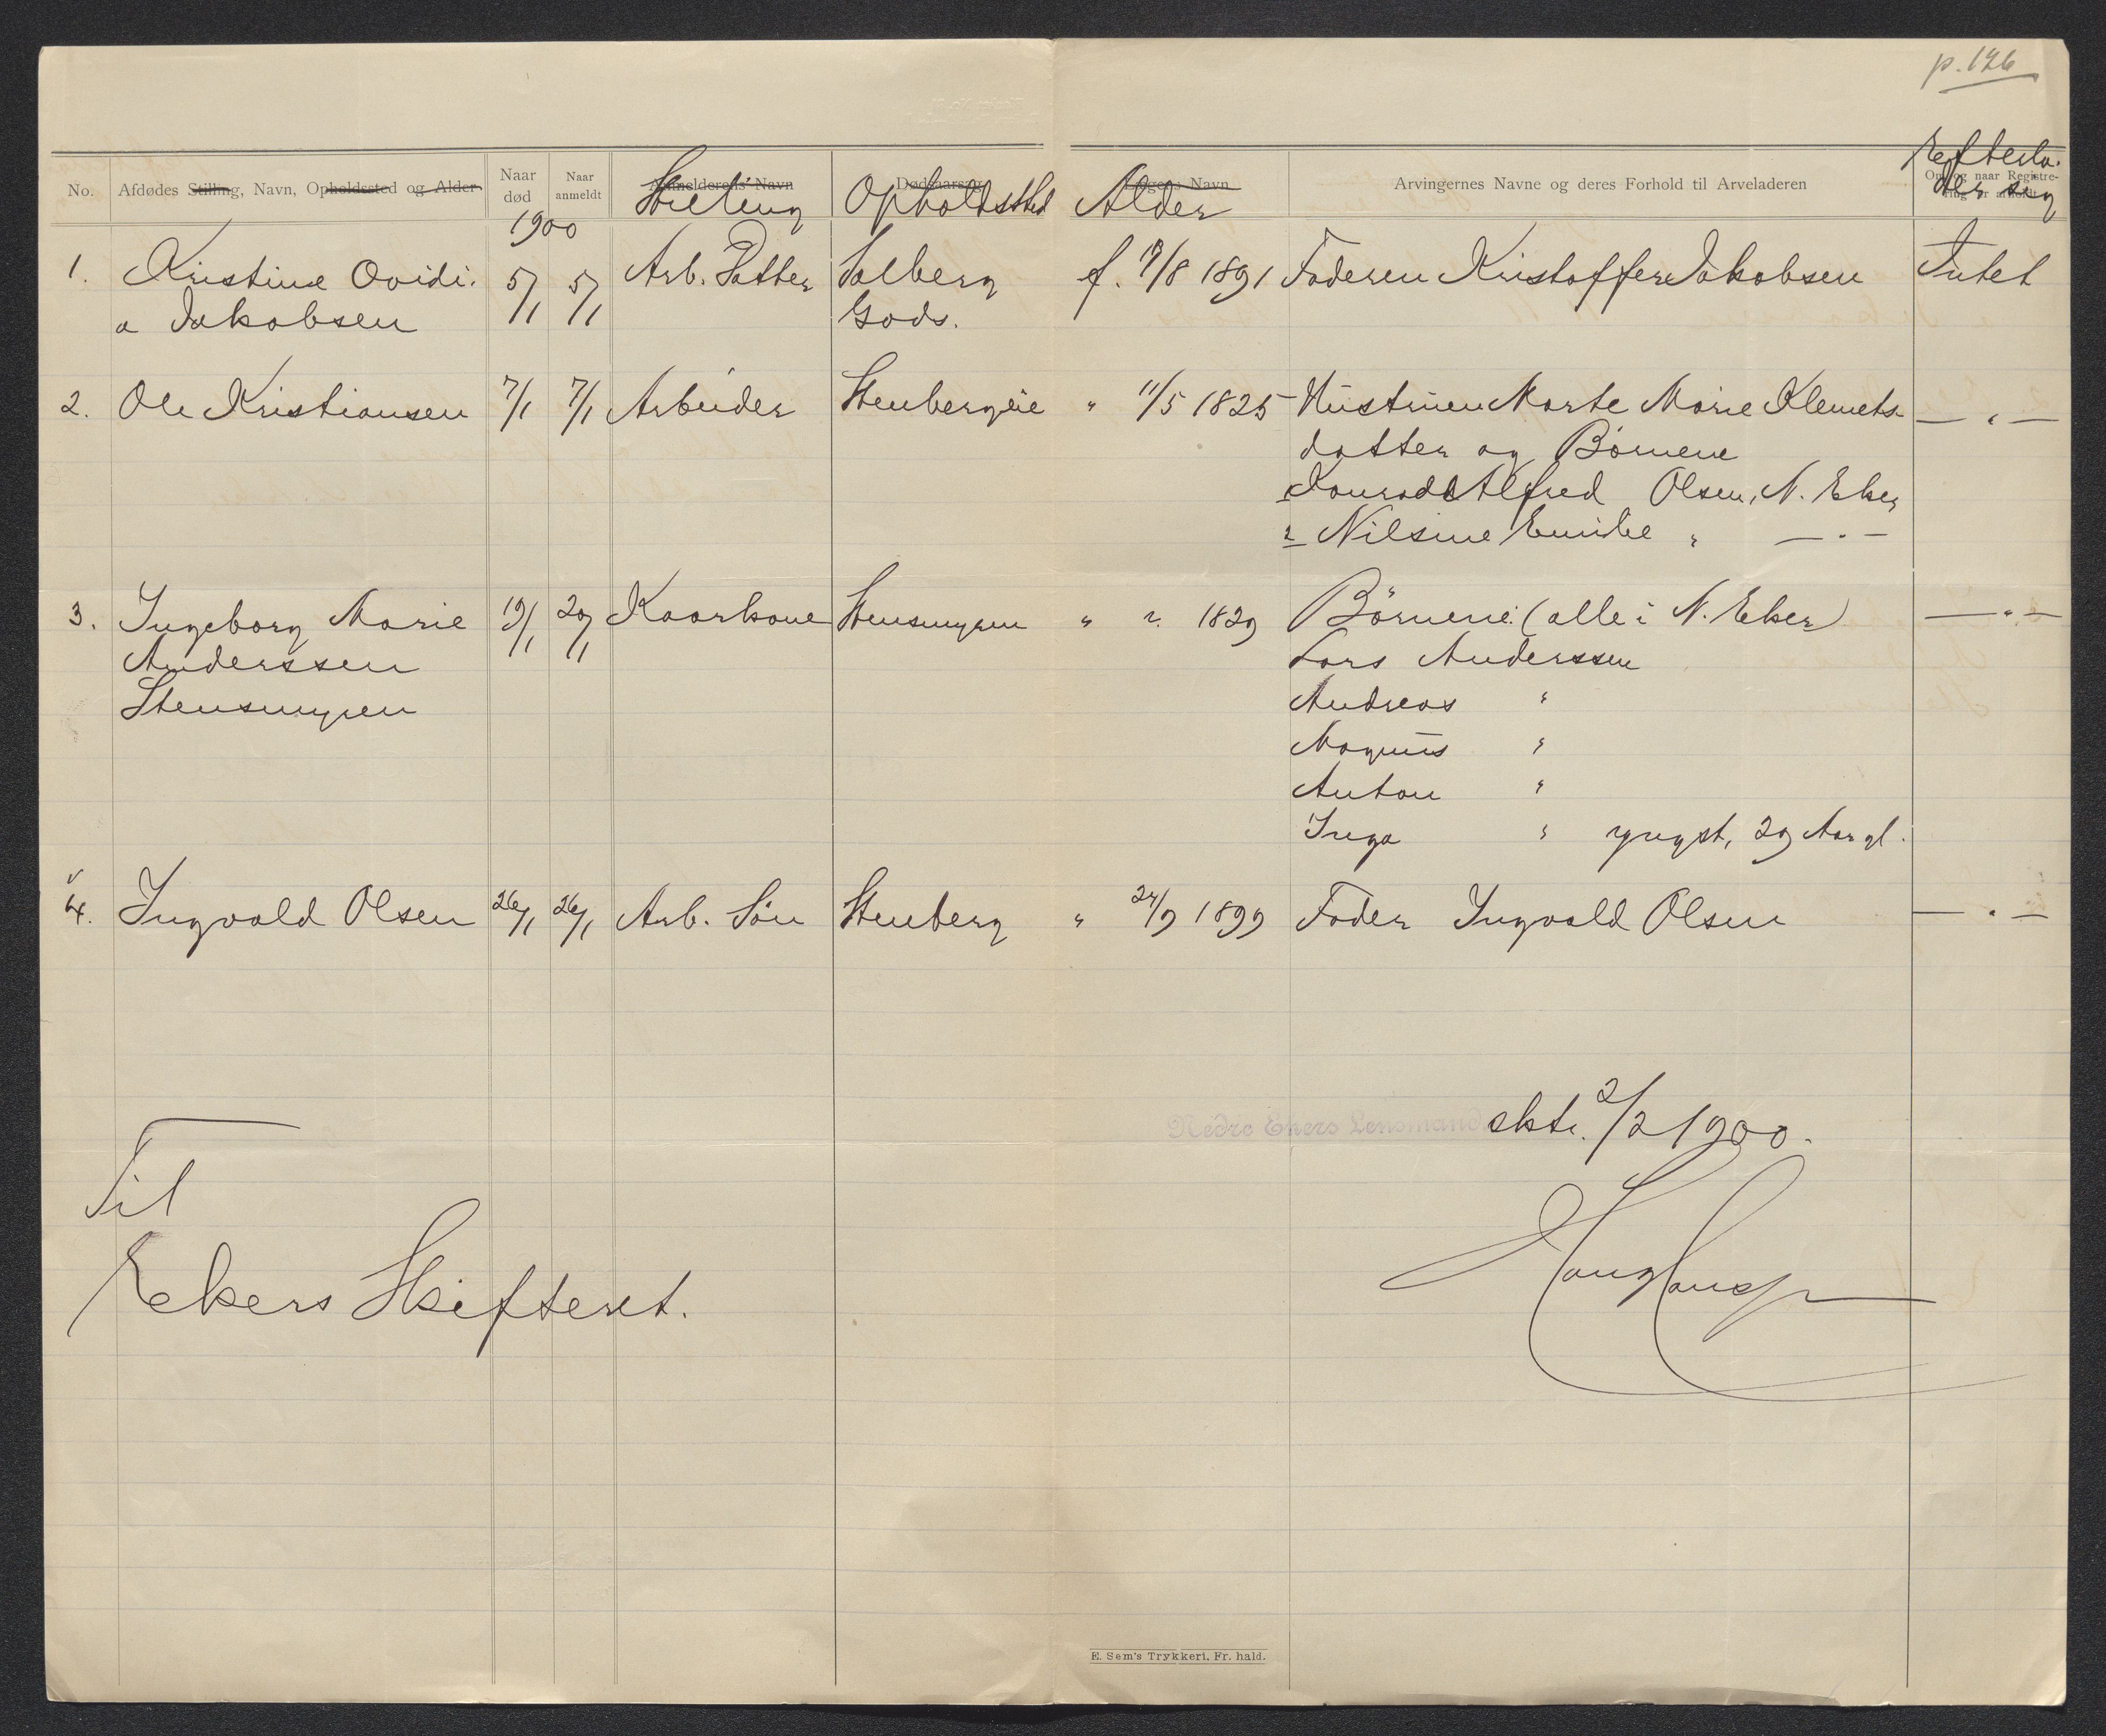 p. 126
No. Afdødes Stilling, Navn, Opholdssted og Alder Naar død Naar anmeldt Anmelderens Navn Dødsaarsag Lægens Navn Arvingernes Navne og deres Forhold til Arveladeren Om og naar Registre-
Stilling Opholdssted Alder Efterla-
der sig
1900
1. Kristine Ovidi- 5/1 5/1 Arb. Datter Solberg f. 17/8 1891 Faderen Kristoffer Jakobsen Intet
a Jakobsen Gods.
2. Ole Kristiansen 7/1 7/1 Arbeider Stenbergeie " 11/5 1825 Hustruen Marte Marie Klemets- — " —
datter og Børnene
1 Konrad Alfred Olsen, N. Eker
2 Nilsine Emilie " — " —
3. Ingeborg Marie 19/1 20/1 Kaarkone Stensmyren " " 1829 Børnene: (alle i N. Eker) — " —
Anderssen Lars Anderssen
Stensmyren Andreas "
Magnus "
Anton "
Inga " yngst, 29 Aar gl.
v
4. Ingvald Olsen 26/1 26/1 Arb. Søn Stenberg " 24/9 1899 Fader Ingvald Olsen — " —
Nedre Ekers Lensmand sktr. 2/2 1900.
Til
Ekers Skifteret.
E. Sem's Trykkeri, Fr. hald.